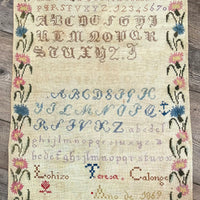 pqrstvxyz.1234567o
ABCDEFGHI
JKLMNOPQR
STUXYZ.J
ABCDEFGH
IJKLMNOPQ
RSTVXYZ abcdef
ghijlmnopqrstuvxyz.a
bcdefghijlmnopqrstuvx
Lohizo Teresa Calonge
Año de 1869